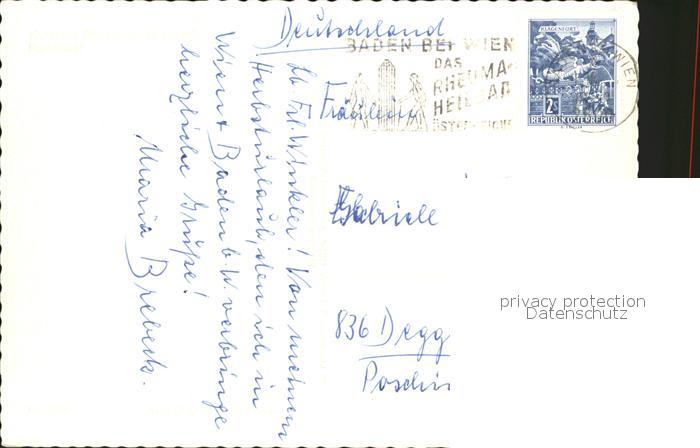 Deutschland
BADEN BEI WIEN
DAS
RHEUMA-
HEILBAD
ÖSTERREICHS
KLAGENFURT
2S
REPUBLIK ÖSTERREICH
WIEN
Lb Frl. Winkler! Von meinem
Herbsturlaub, den ich in
Wien + Baden b. W. verbringe
herzliche Grüße!
Maria Brebeck.
Fräulein
Gabriele
836 Degg
privacy protection
Datenschutz